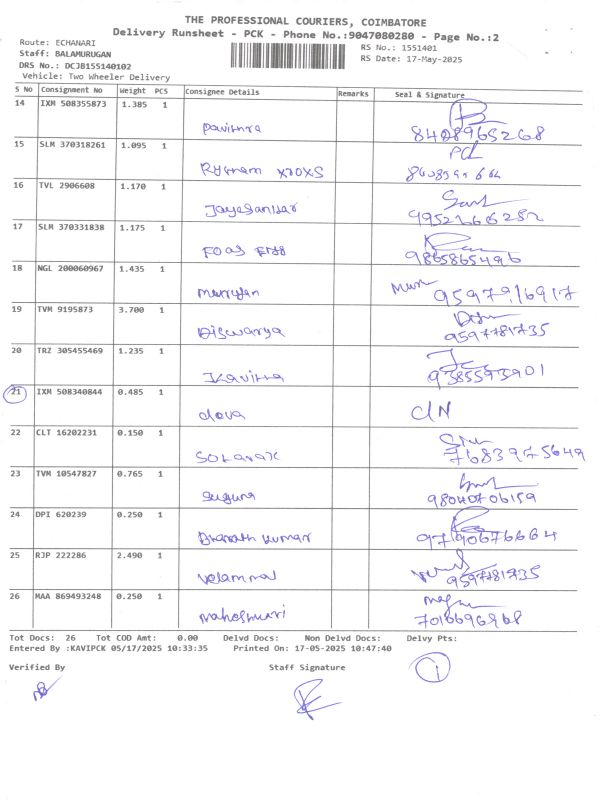 THE PROFESSIONAL COURIERS, COIMBATORE
Delivery Runsheet - PCK - Phone No.:9047080280 - Page No.:2
Route: ECHANARI
RS No.: 1551401
Staff: BALAMURUGAN
RS Date: 17-May-2025
DRS No.: DCJB155140102
Vehicle: Two Wheeler Delivery
S No Consignment No Weight PCS Consignee Details Remarks Seal & Signature
14 IXM 508355873 1.385 1
Pavithra 8408965268
15 SLM 370318261 1.095 1
PCL
16 TVL 2906608 1.170 1
Jayaganisar 9952166252
17 SLM 370331838 1.175 1
9865865496
18 NGL 200060967 1.435 1
Murugan 9597916917
19 TVM 9195873 3.700 1
Aiswarya 9597781735
20 TRZ 305455469 1.235 1
Kavitha 9385593901
21 IXM 508340844 0.485 1
dova CIN
22 CLT 16202231 0.150 1
7683975649
23 TVM 10547827 0.765 1
Suguna 98040706159
24 DPI 620239 0.250 1
Bharath Kumar 9790676664
25 RJP 222286 2.490 1
Velammal 9597781735
26 MAA 869493248 0.250 1
Maheshwari 7016696968
Tot Docs: 26 Tot COD Amt: 0.00 Delvd Docs: Non Delvd Docs: Delvy Pts:
Entered By :KAVIPCK 05/17/2025 10:33:35 Printed On: 17-05-2025 10:47:40
1
Verified By Staff Signature